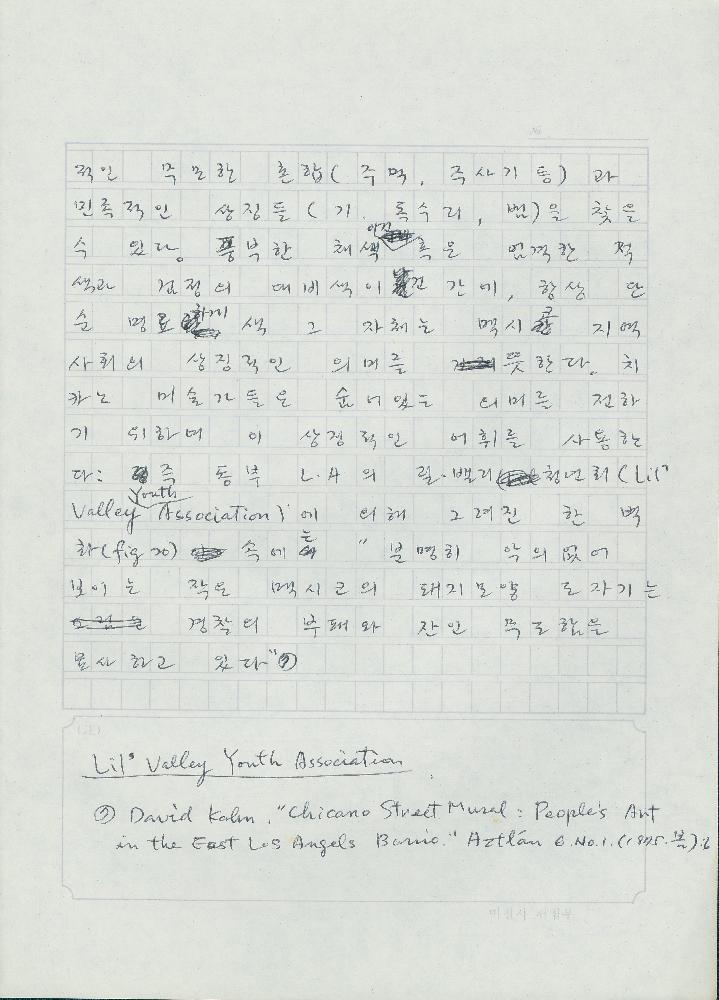 No
적인 폭로한 혼합( 주먹, 주사기 등) 과
민족적인 상징들 ( 기, 독수리, 뱀)을 찾을
수 있다. 풍부한 채색 혹은 엄격한 적
색과 검정의 대비색이 간에, 항상 단
순 명료하게 색 그 자체는 멕시코 지역
사회의 상징적인 의미를 뜻한다. 치
카노 미술가들은 숨어있는 의미를 전하
기 위하며 이 상징적인 어휘를 사용한
다: 즉 동부 L.A의 릴·밸리 청년회 (Lil'
Valley Youth Association)에 의해 그려진 한 벽
화(fig 20) 속에는 " 분명히 악의 없어
보이는 작은 멕시코의 돼지모양 도자기는
경찰의 부패와 잔인 폭로함을
묘사하고 있다"⑦
Lil' Valley Youth Association
⑦ David Kahn, "Chicano Street Mural : People's Art
in the East Los Angels Barrio." Aztlán 6. No.1. (1975. 봄)